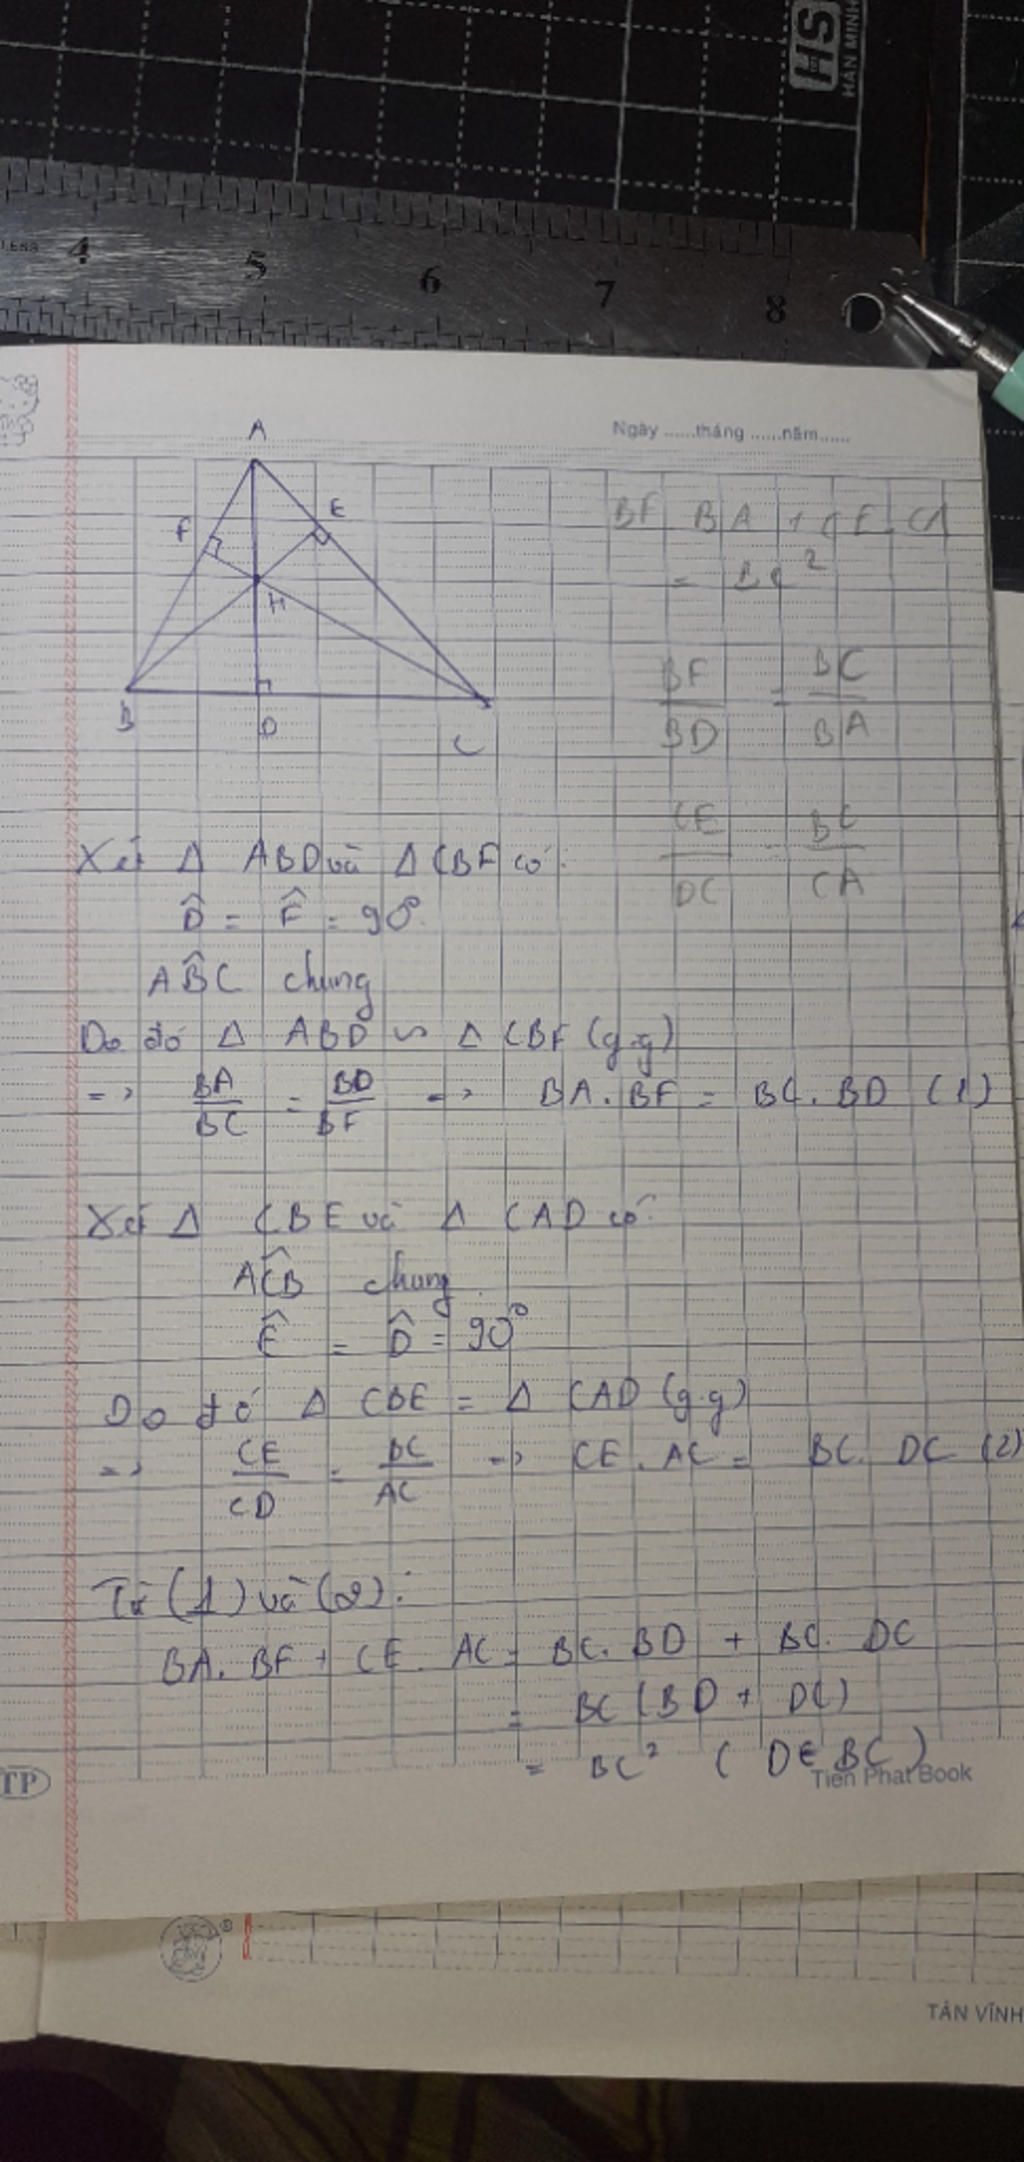 HS
HAN MINH
4 5 6 7 8
Ngày ......tháng ......năm......
A
F
E
H
B
D
C
BF BA + CE. CA
= BC²
BF/BD = BC/BA
CE/DC = BC/CA
Xét Δ ABD và Δ CBF có:
D̂ = F̂ = 90°
AB̂C chung
Do đó Δ ABD ∽ Δ CBF (g.g)
=> BA/BC = BD/BF => BA. BF = BC. BD (1)
Xét Δ CBE và Δ CAD có:
AĈB chung
Ê = D̂ = 90°
Do đó Δ CBE = Δ CAD (g.g)
=> CE/CD = DC/AC => CE. AC = BC. DC (2)
Từ (1) và (2):
BA. BF + CE. AC = BC. BD + BC. DC
= BC (BD + DC)
= BC² ( D∈ BC )
TP
Tien Phat Book
TÂN VĨNH